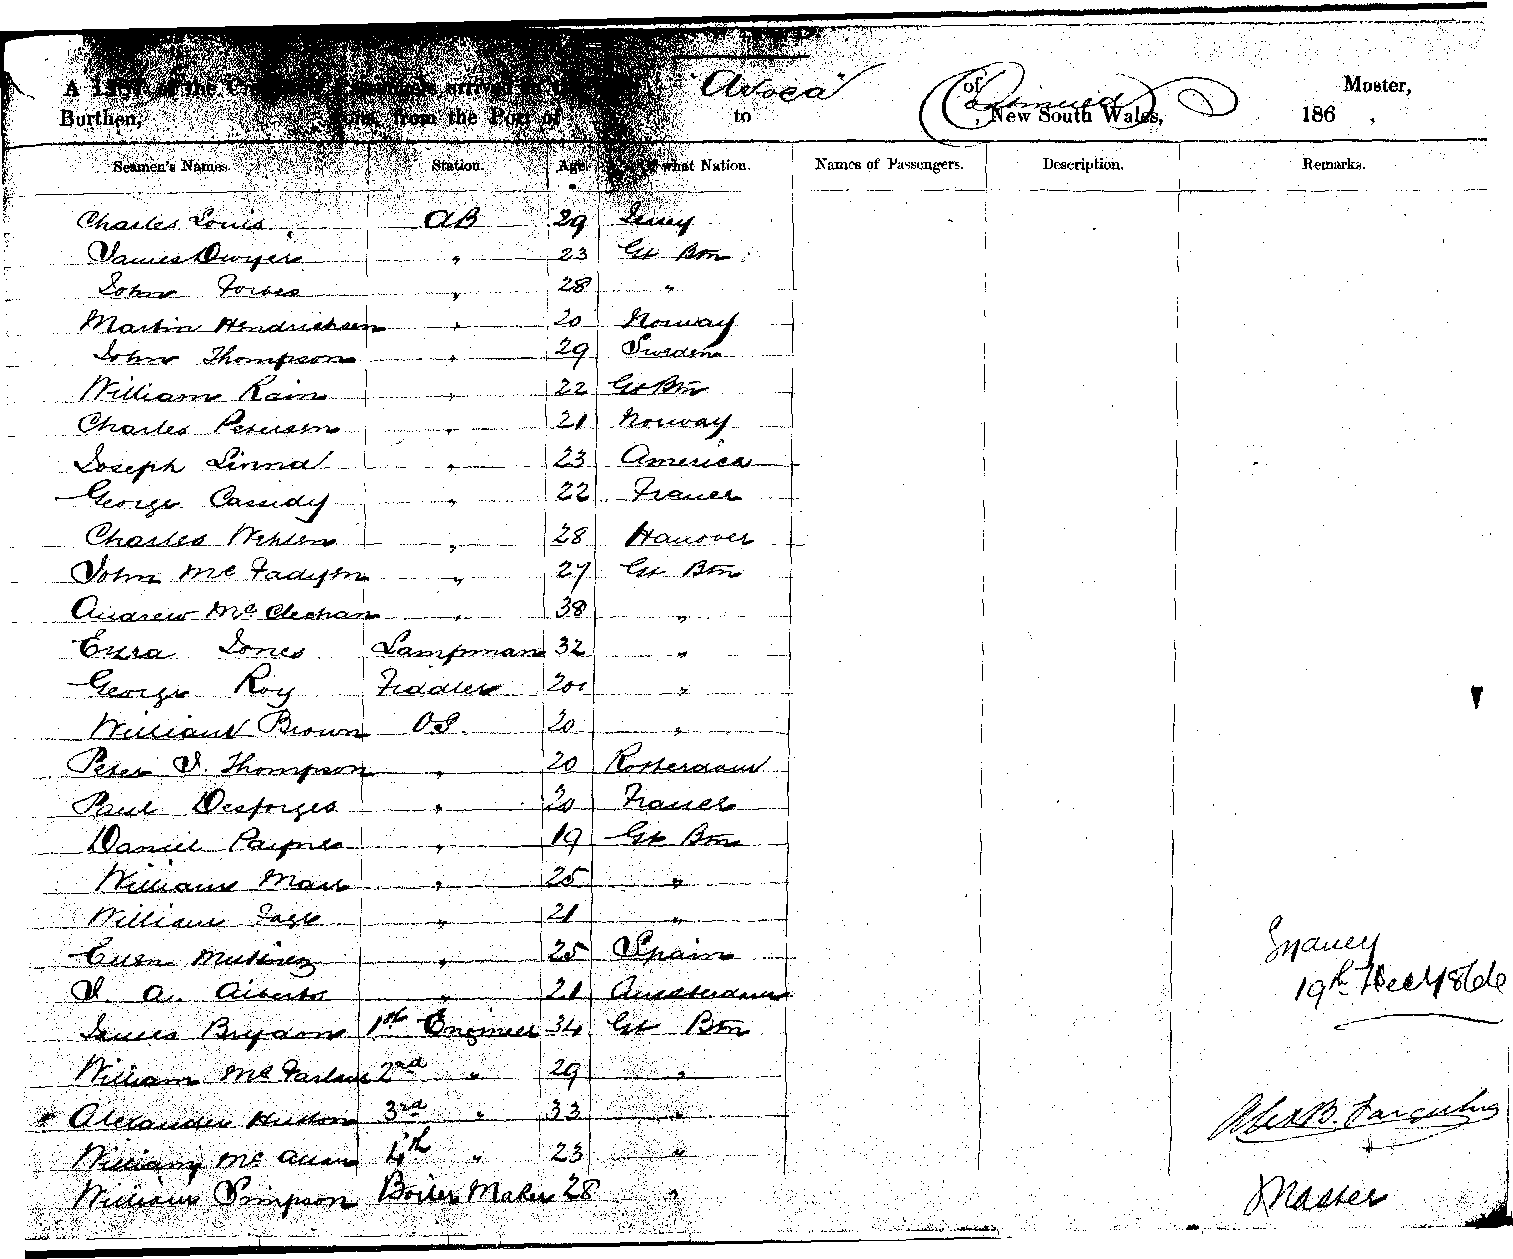 A List of the Crew and Passengers arrived in the "Avoca" of Continued Master,
Burthen, tons, from the Port of to New South Wales, 186 .
Seamen's Names. Station. Age. Of what Nation. Names of Passengers. Description. Remarks.
Charles Louis AB 29 Jersey
James Dwyer " 23 Gt Btn
John Forbes " 28 "
Martin Hendricksen " 20 Norway
John Thompson " 29 Sweden
William Rain " 22 Gt Btn
Charles Petersen " 21 Norway
Joseph " 23 America
George Cassidy " 22 France
Charles Wehlen " 28 Hanover
John McFadyen " 27 Gt Btn
Andrew McClechan " 38 "
Ezra Jones Lampman 32 "
George Roy Fiddler 20 "
William Brown OS. 20 "
Peter J. Thompson " 20 Rotterdam
Paul Desforges " 20 France
Daniel Paynes " 19 Gt Btn
William " 25 "
William " 21 "
" 25 Spain
J. A. Alberts " 21 Amsterdam
James Brydon 1st Engineer 34 Gt Btn
William McFarlane 2nd " 29 "
Alexander Hutton 3rd " 33 "
William McAllan 4th " 23 "
William Simpson Boiler Maker 28 "
Sydney
19th Decr 1866
Master